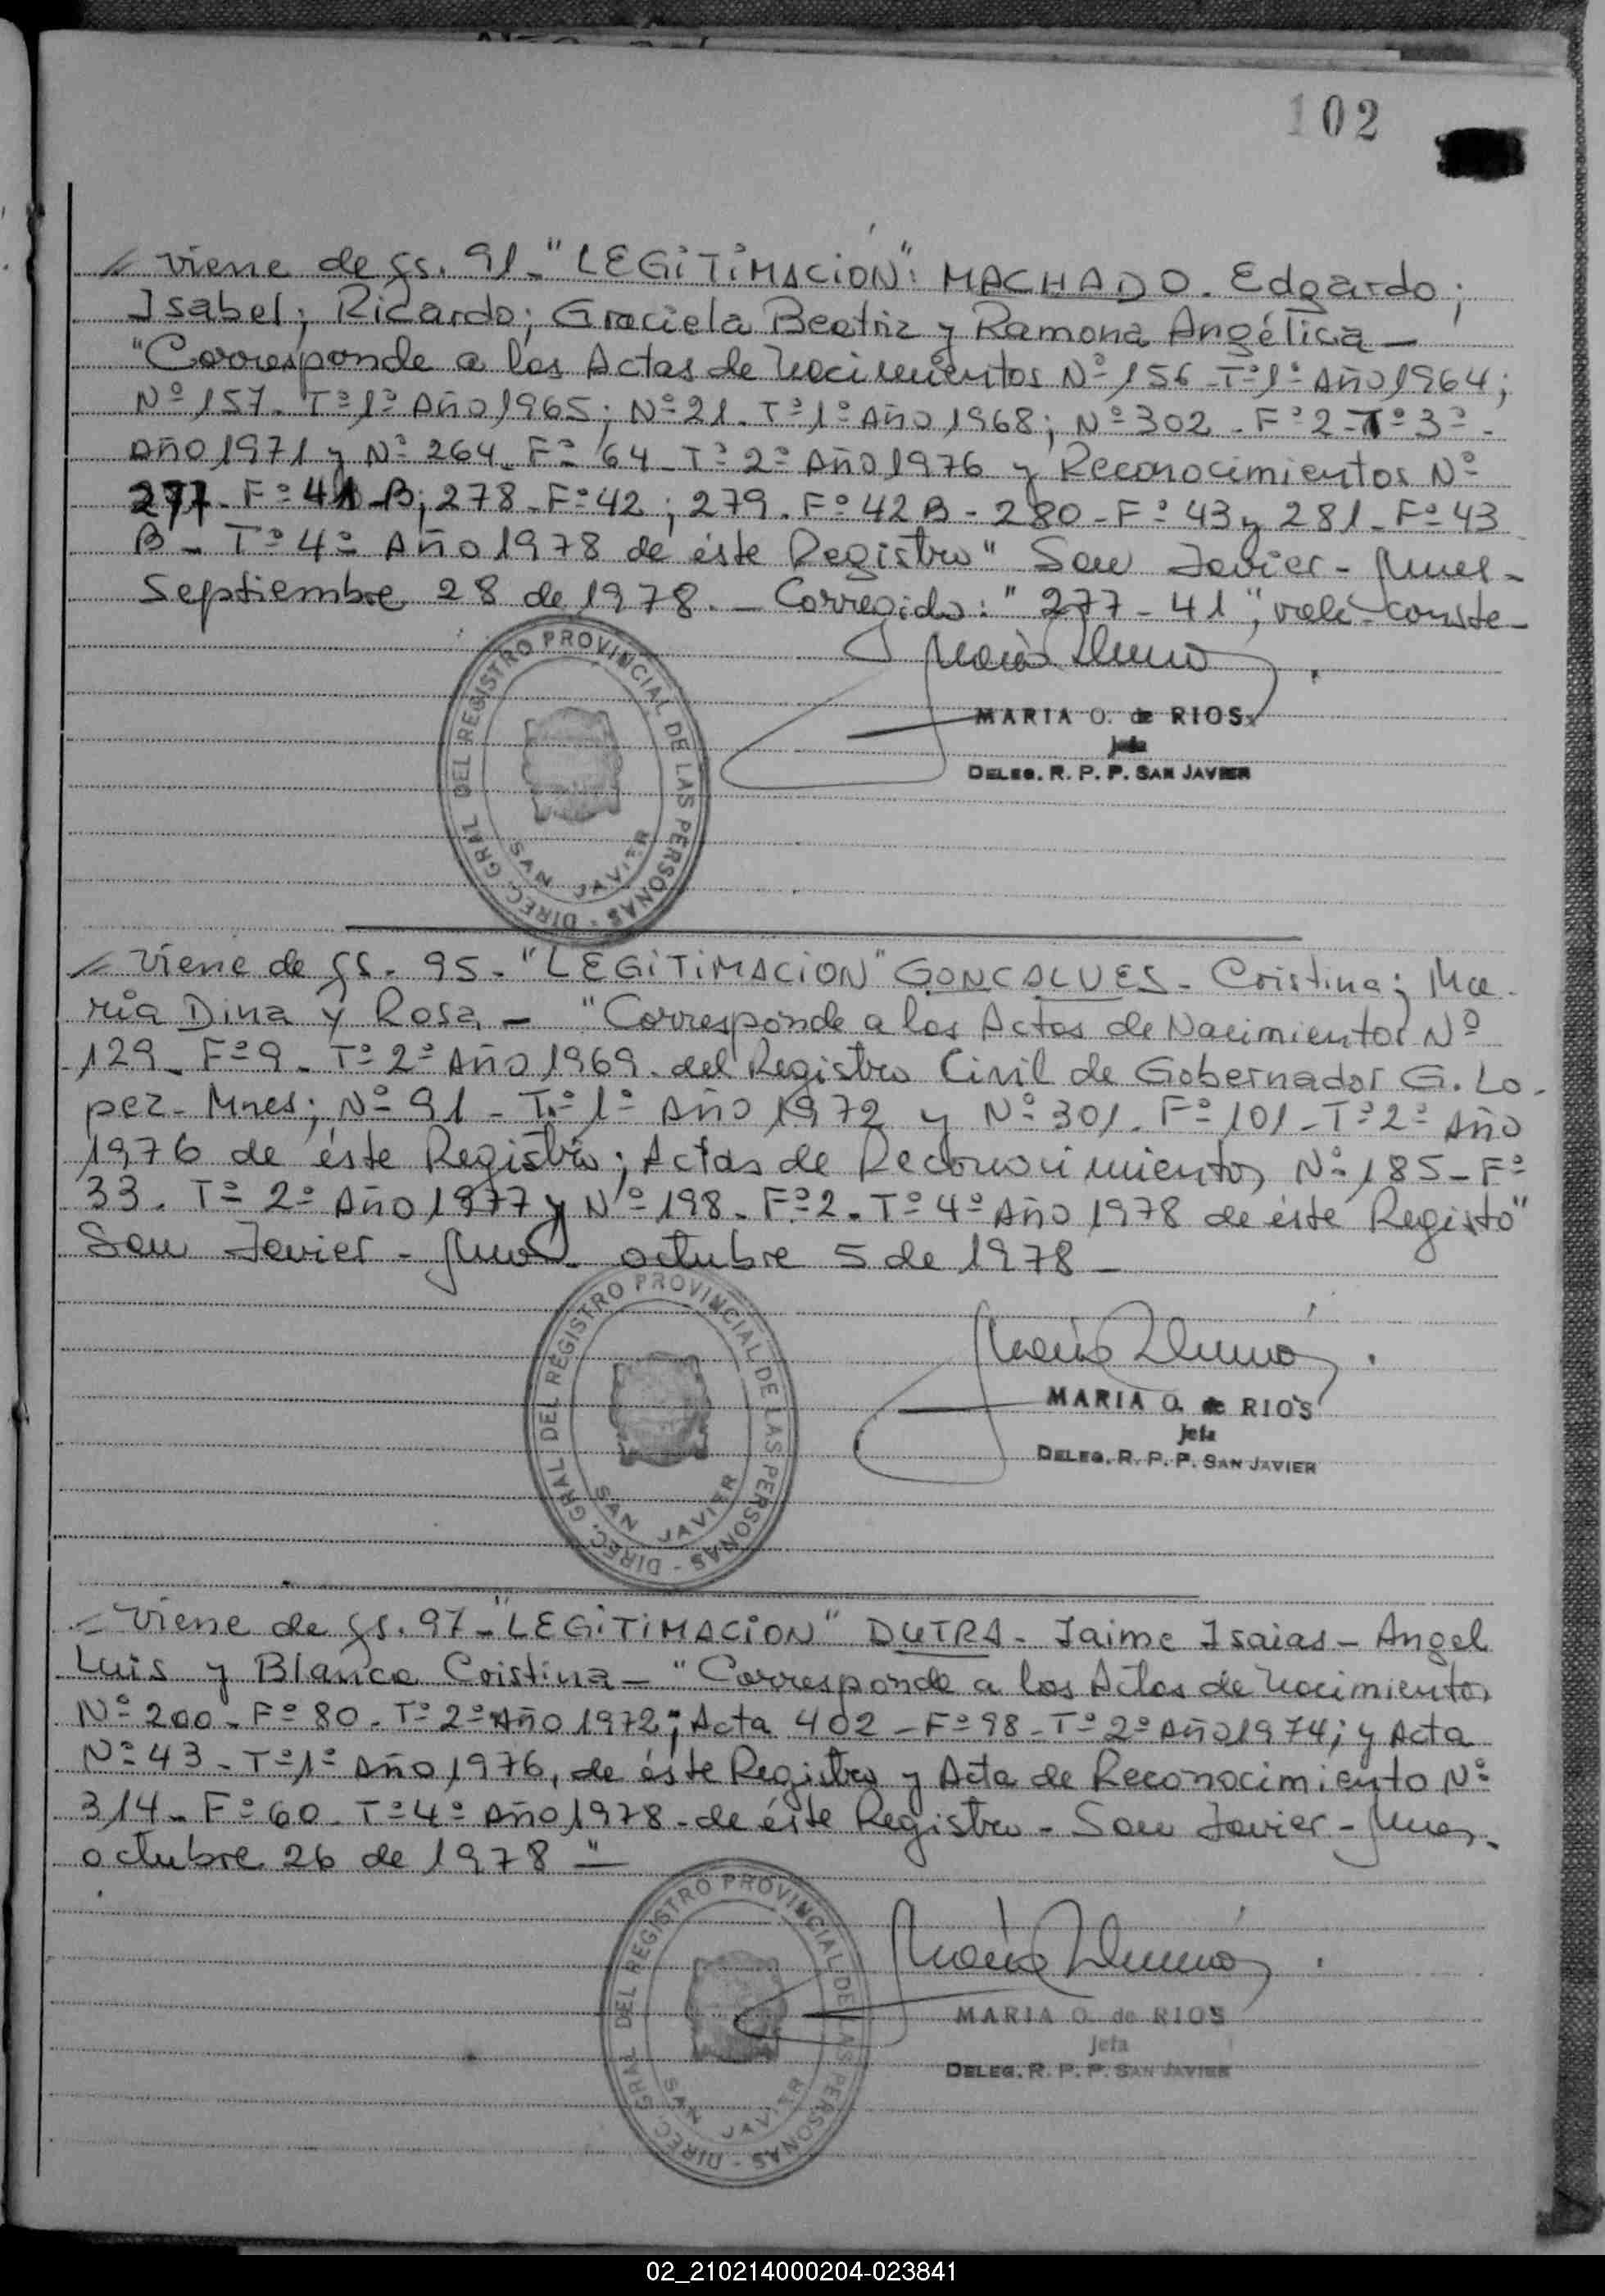 102
viene de fs. 91_ "LEGITIMACION": MACHADO. Edgardo;
Isabel; Ricardo; Graciela Beatriz y Ramona Angélica_
"Corresponde a las Actas de Nacimientos Nº 156_Tº1º Año 1964;
Nº 157_ Tº1º Año 1965; Nº 21_ Tº1º Año 1968; Nº 302_ Fº 2_Tº 3º_
Año 1971 y Nº 264_ Fº 64_ Tº 2º Año 1976 y Reconocimientos Nº
277_ Fº 41_B; 278_Fº 42; 279_ Fº 42 B - 280_Fº 43 y 281_Fº 43
B_ Tº 4º Año 1978 de éste Registro" San Javier - Mnes -
Septiembre 28 de 1978. _ Corregido: "277 - 41", vale. conste_
MARIA O. de RIOS
Jefa
DELEG. R. P. P. SAN JAVIER
DIREC. GRAL DEL REGISTRO PROVINCIAL DE LAS PERSONAS -
SAN JAVIER
viene de fs. 95_ "LEGITIMACION" GONCALVES_ Cristina; Ma_
ria Dina y Rosa_ "Corresponde a las Actas de Nacimientos Nº
129_ Fº 9_ Tº 2º Año 1969_ del Registro Civil de Gobernador G. Lo_
pez_ Mnes; Nº 91_ Tº 1º Año 1972 y Nº 301_ Fº 101_ Tº 2º Año
1976 de éste Registro; Actas de Reconocimientos Nº 185_ Fº
33_ Tº 2º Año 1977 y Nº 198_ Fº 2_ Tº 4º Año 1978 de éste Registo"
San Javier - Mnes_ octubre 5 de 1978_
MARIA O. de RIOS
Jefa
DELEG. R. P. P. SAN JAVIER
DIREC. GRAL DEL REGISTRO PROVINCIAL DE LAS PERSONAS -
SAN JAVIER
viene de fs. 97_ "LEGITIMACION" DUTRA_ Jaime Isaias_ Angel
Luis y Blanca Cristina_ "Corresponde a las Actas de Nacimientos
Nº 200_ Fº 80_ Tº 2º Año 1972; Acta 402_ Fº 98_ Tº 2º Año 1974; y Acta
Nº 43_ Tº 1º Año 1976, de éste Registro y Acta de Reconocimiento Nº
314_ Fº 60_ Tº 4º Año 1978_ de éste Registro_ San Javier - Mnes_
octubre 26 de 1978 "_
MARIA O. de RIOS
Jefa
DELEG. R. P. P. SAN JAVIER
DIREC. GRAL DEL REGISTRO PROVINCIAL DE LAS PERSONAS -
SAN JAVIER
02_210214000204-023841